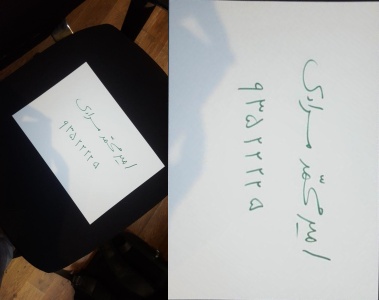 امیرمحمد مرادی
۹۳۵۲۲۲۲۵
امیرمحمد مرادی
۹۳۵۲۲۲۲۵